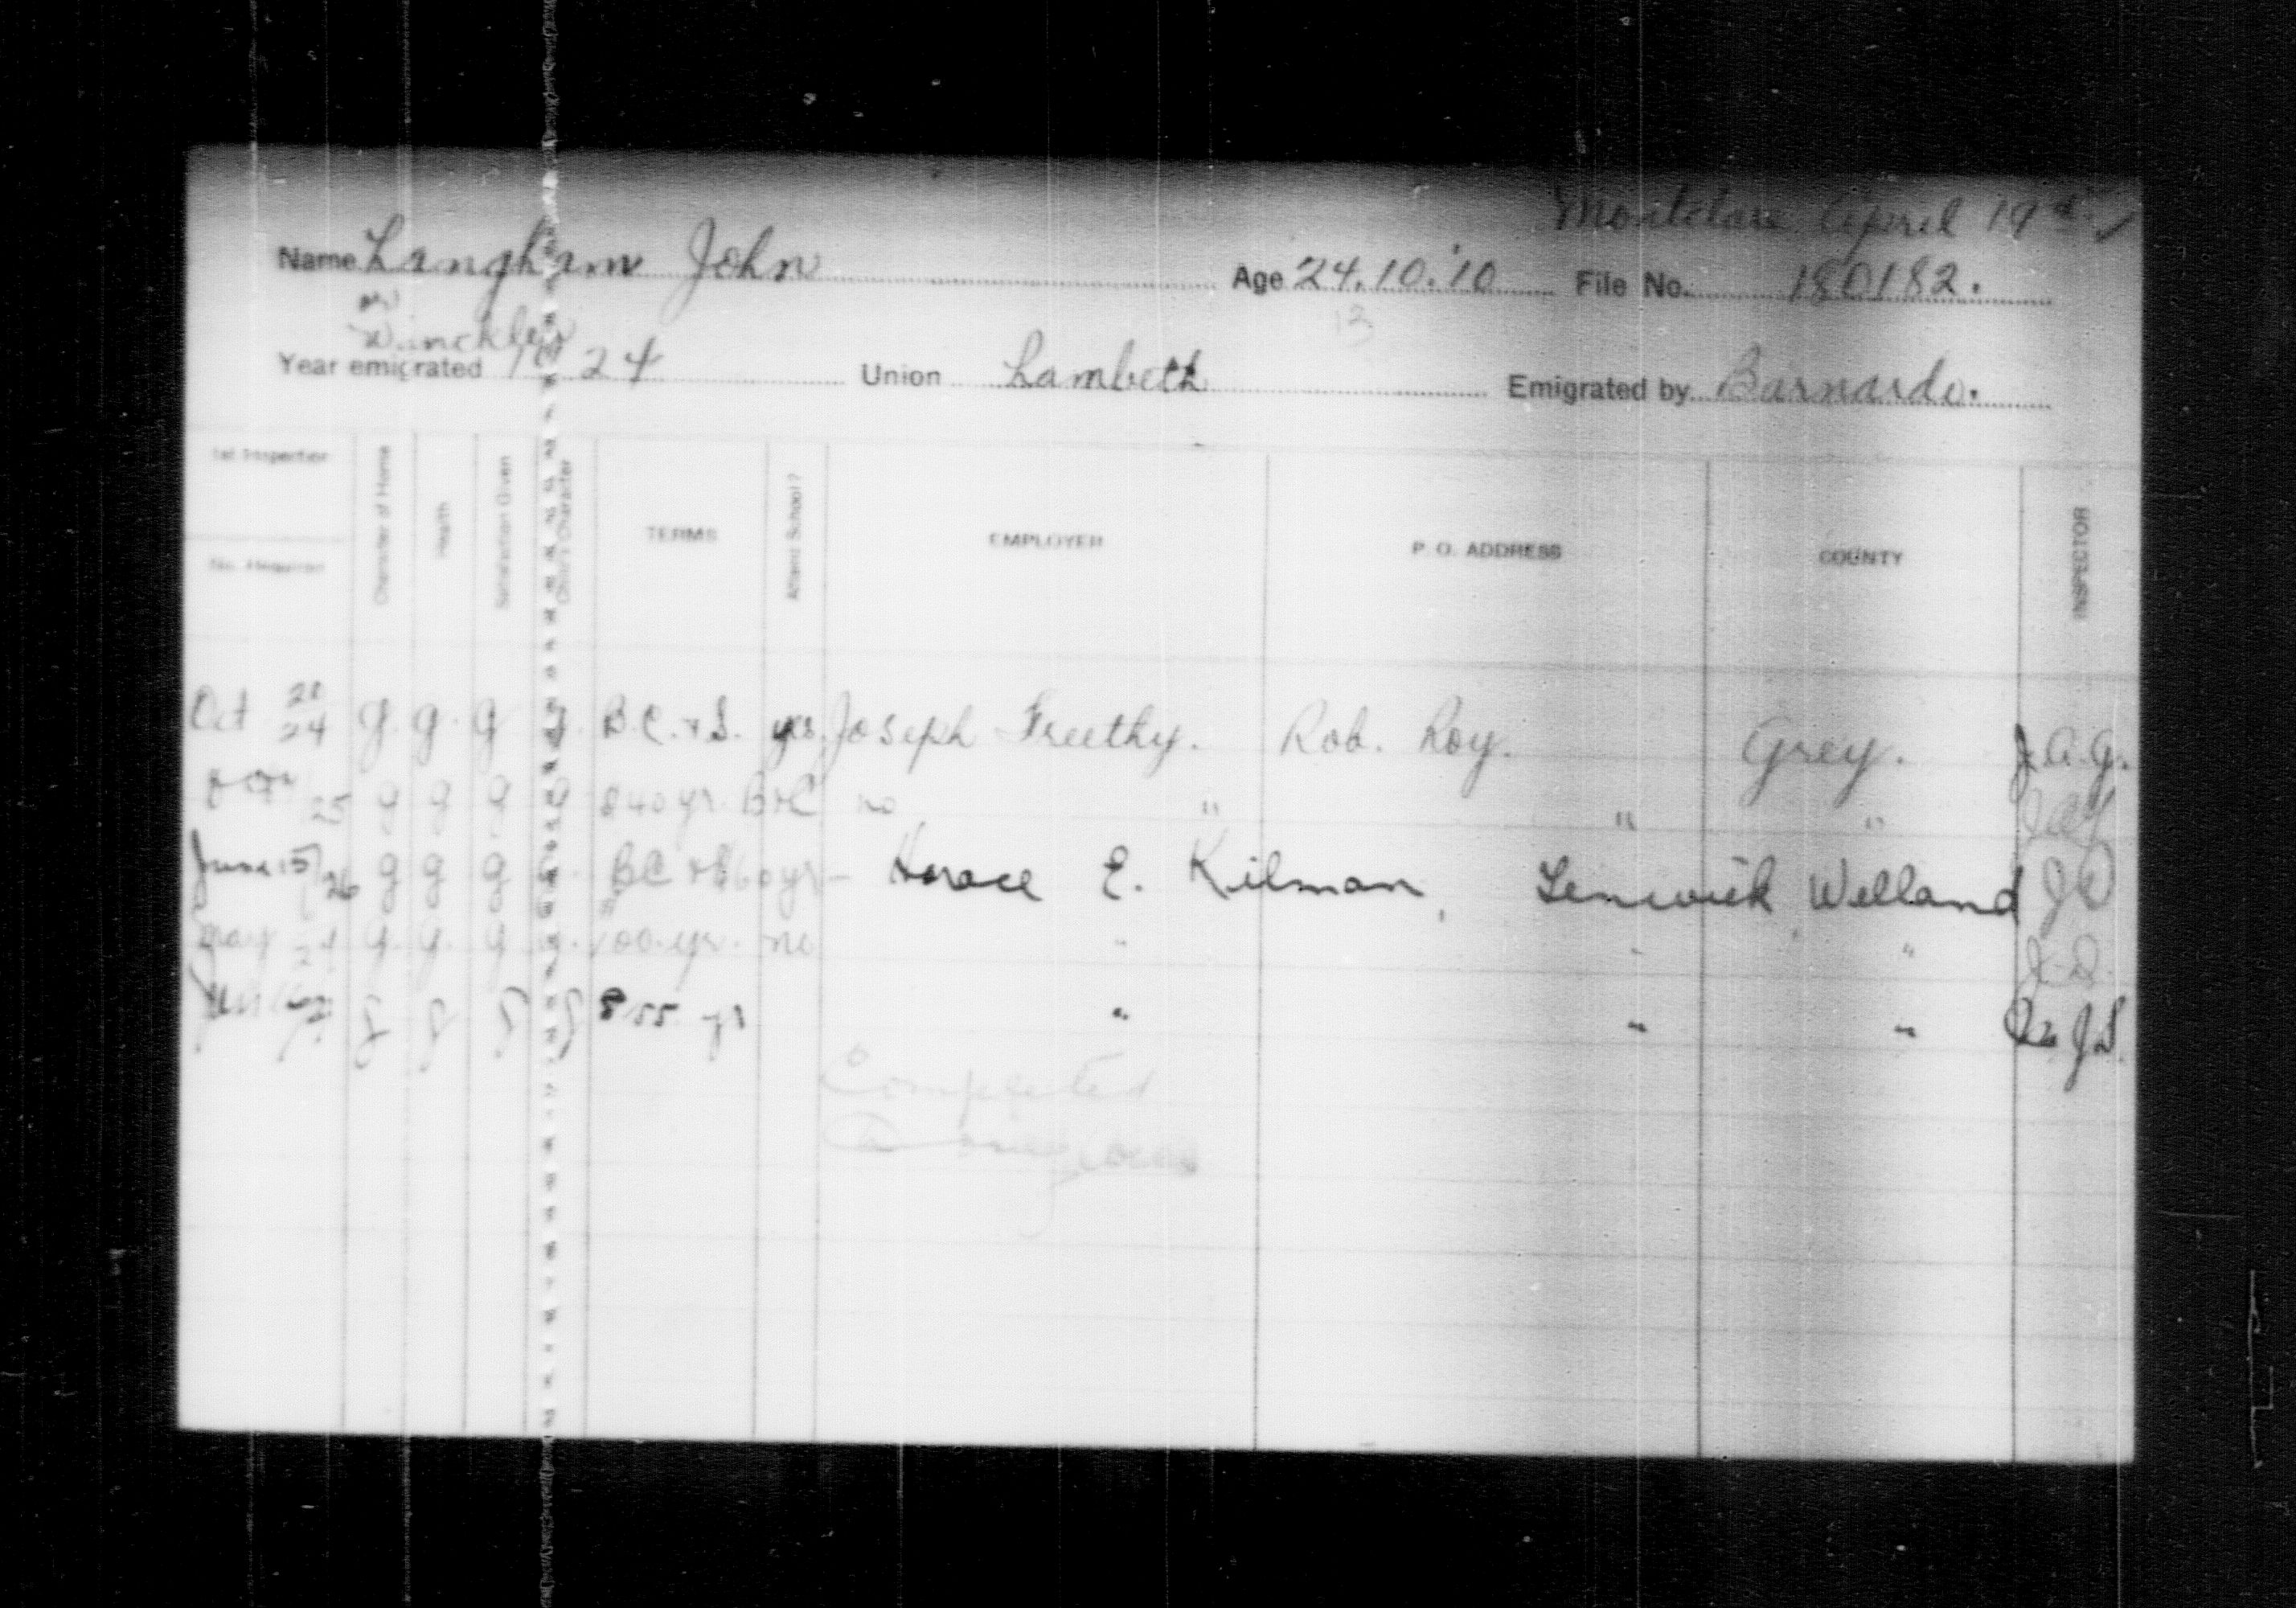 Montclare April 19th
Name Langham John Age 24.10.'10 File No. 180182.
or 13
Winckler
Year emigrated 1924 Union Lambeth Emigrated by Barnardo.
1st Inspection
No. Required
Character of Home
Health
Satisfaction Given
Child's Character
TERMS
Attend School?
EMPLOYER
P. O. ADDRESS
COUNTY
INSPECTOR
Oct 28 24 g. g. g g. B.C. + S. yes. Joseph Freethy. Rob. Roy. Grey. J.A.G.
25 g g g g $40 yr. B+C no " " " J.A.G.
June 15/26 g g g g. BC + $60 yr - Horace E. Kilman, Fenwick, Welland J D
May g. g. g 100. yr. no " " " J.D.
g g g g $155 yr " " "
Completed